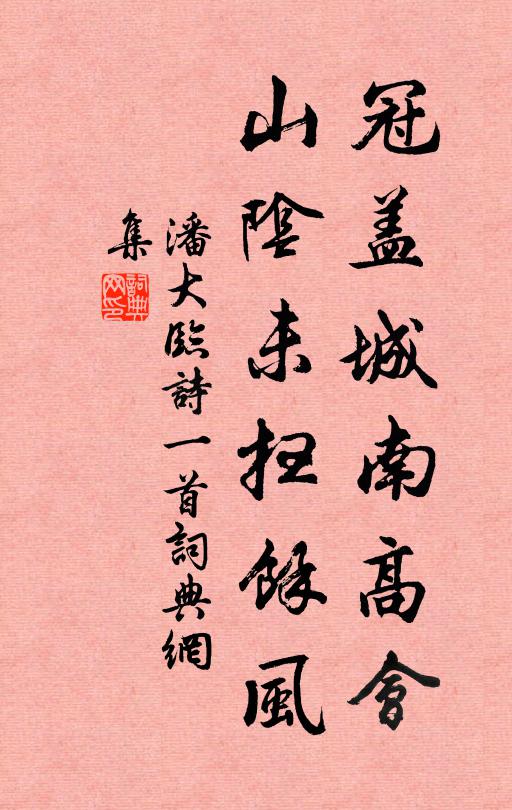 冠盖城南高會
山陰未扫餘風
潘大臨詩一首詞典網
集
詞典
网印